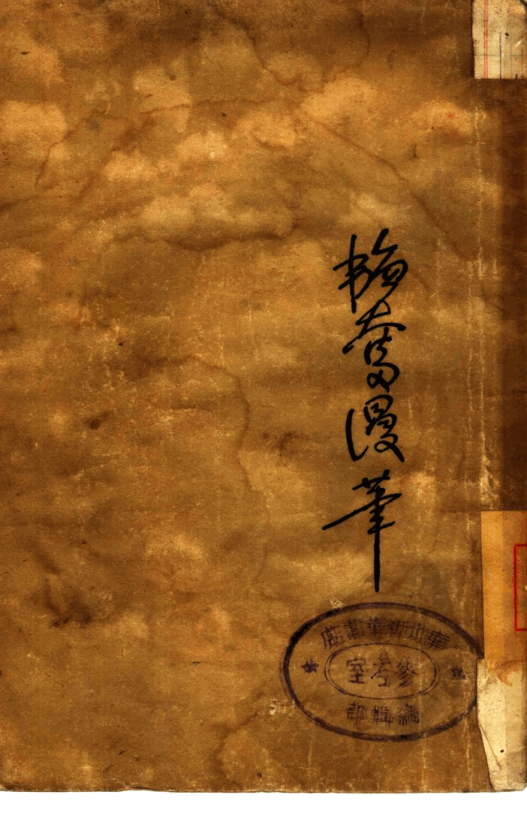 韜奮漫筆
華北新華書店
參考室
編輯部